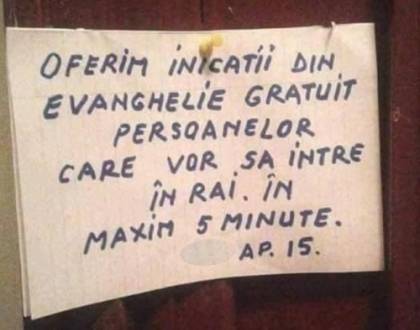 OFERIM INICATII DIN
EVANGHELIE GRATUIT
PERSOANELOR
CARE VOR SA INTRE
ÎN RAI. ÎN
MAXIM 5 MINUTE.
AP. 15.